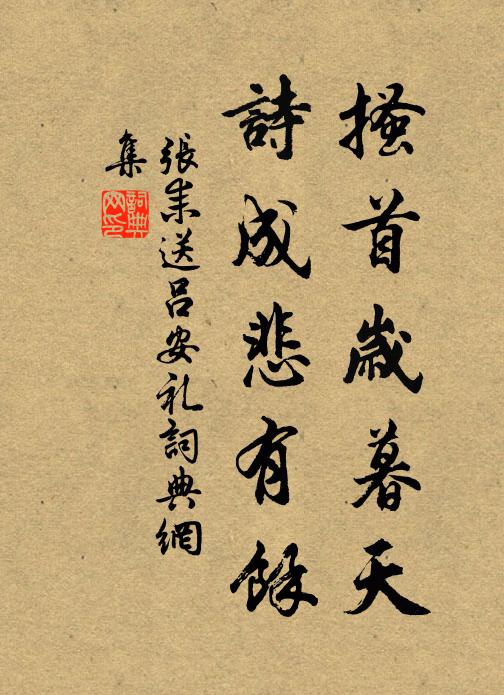 搔首歲暮天
詩成悲有餘
張耒送呂安礼詞典網
集
詞典網印